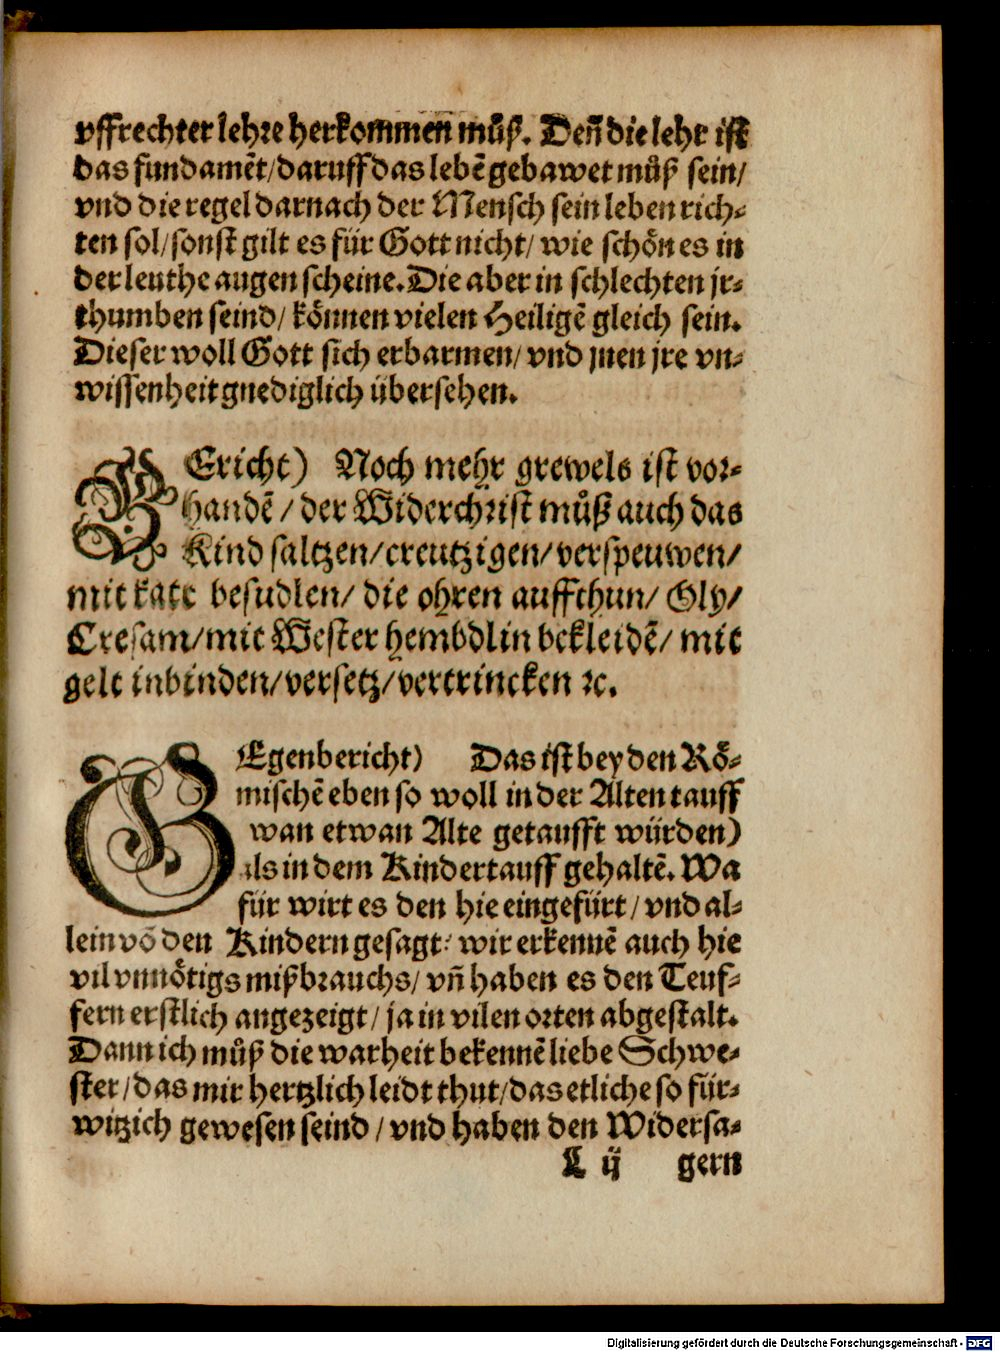 vffrechter lehre herkommen můß. Deñ die lehr ist
das fundamēt/daruff das lebē gebawet můß sein/
vnd die regel darnach der Mensch sein leben rich⸗
ten sol/sonst gilt es für Gott nicht/ wie schön es in
der leuthe augen scheine. Die aber in schlechten jr⸗
thumben seind/ können vielen Heiligē gleich sein.
Dieser woll Gott sich erbarmen/ vnd jnen jre vn⸗
wissenheit gnediglich übersehen.
BEricht) Noch mehr grewels ist vor⸗
handē/der Widerchrist můß auch das
Kind saltzen/creutzigen/verspeuwen/
mit katc besudlen/ die ohren auffthun/ Oly/
Cresam/mit Wester hembdlin bekleidē/ mit
gelt inbinden/versetz/vertrincken ꝛc.
GEgenbericht) Das ist bey den Rö⸗
mischē eben so woll in der Alten tauff
wan etwan Alte getaufft würden)
als in dem Kindertauff gehaltē. Wa
für wirt es den hie eingefürt/ vnd al⸗
lein võ den Kindern gesagt: wir erkennē auch hie
vil vnnötigs mißbrauchs/ vñ haben es den Teuf⸗
fern erstlich angezeigt/ ja in vilen orten abgestalt.
Dann ich můß die warheit bekennē liebe Schwe⸗
ster/das mir hertzlich leidt thut/das etliche so für⸗
witzich gewesen seind/vnd haben den Widersa⸗
L ij gern
Digitalisierung gefördert durch die Deutsche Forschungsgemeinschaft - DFG